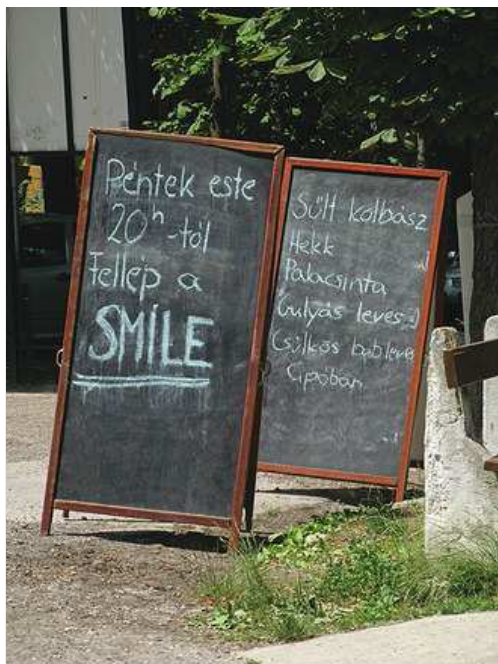 Péntek este
20h-tól
Fellép a
SMÍLE
Sült kolbász
Hekk
Palacsinta
Gulyás leves
Csülkös bableves
Cipóban